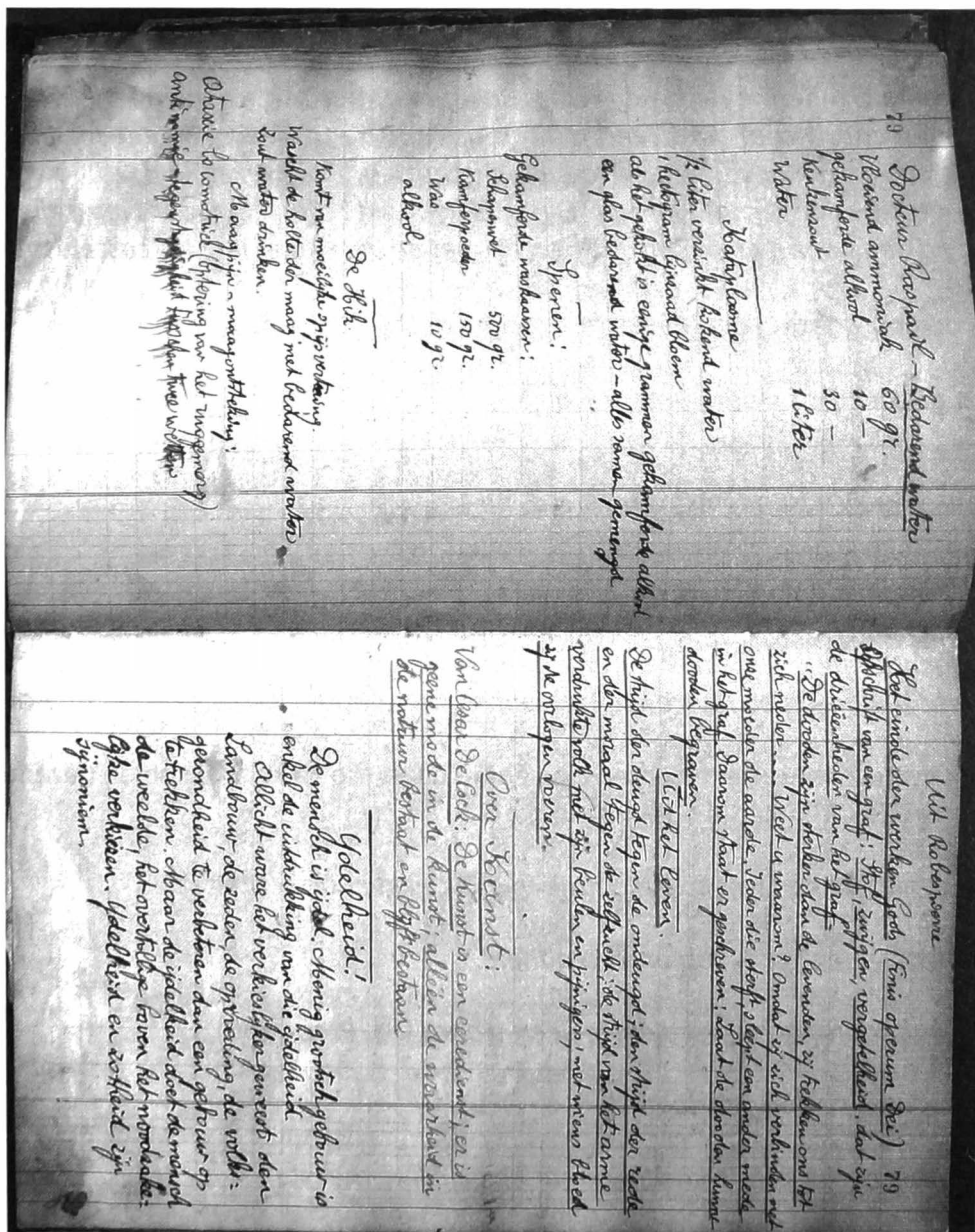 79
Doctuur Raspail - Bedarend water
Vloeiend ammoniak 60 gr.
gekamforde alkool 10 -
Keukenzout 30 -
Water 1 liter
Kataplasme
½ liter versinkt kokend water
1 hectogram linzaad bloem
als het gekookt is eenige grammen gekamforde alkool
een glas bedarend water - alles samen gemengd
Spenen!
Gekamforde waskaarsen:
Schapenvet 500 gr.
Kamferpoeder 150 gr.
Was 10 gr.
alkool.
De Hik
Komt van moeilijke spijsvertering.
Wascht de holte der maag met bedarend water
Zout water drinken.
Maagpijn - maagontsteking:
Ataxie locomotrice (bytering van het ruggemerg)
Uit Robespierre
Het einde der werken Gods (Finis operum Dei) 79
Opschrift van een graf: Stof, zwijgen, vergetelheid, dat zijn
de drieëenheden van het graf
"De dooden zijn sterker dan de levenden, zij trekken ons tot
zich neder. - Weet u waarom? Omdat zij zich verbinden met
onze moeder de aarde. Ieder die sterft, sleept een ander mede
in het graf. Daarom staat er geschreven: Laat de dooden hunne
dooden begraven.
Uit het leven.
De strijd der deugd tegen de ondeugd; den strijd der rede
en der moraal tegen de zelfzucht; de strijd van het arme
verdrukte volk met zijn beulen en pijnigers; met wiens bloed
zij de oorlogen voeren.
Over Kunst:
Van Cesar De Cock: De kunst is een eeredienst; er is
geene mode in de kunst, alléén de waarheid in
de natuur bestaat en blijft bestaan
Ydelheid!
De mensch is ijdel. Menig grootsch gebouw is
enkel de uitdrukking van die eidelheid
Allicht ware het verkieslijker geweest den
Landbouw, de zeden, de opvoeding, de volks=
gezondheid te verbeteren dan een gebouw op
te trekken. Maar de ijdelheid doet de mensch
de weelde, het overtollige boven het noodzake=
lijke verkiezen. Ydelheid en zotheid zijn
sijnoniem.